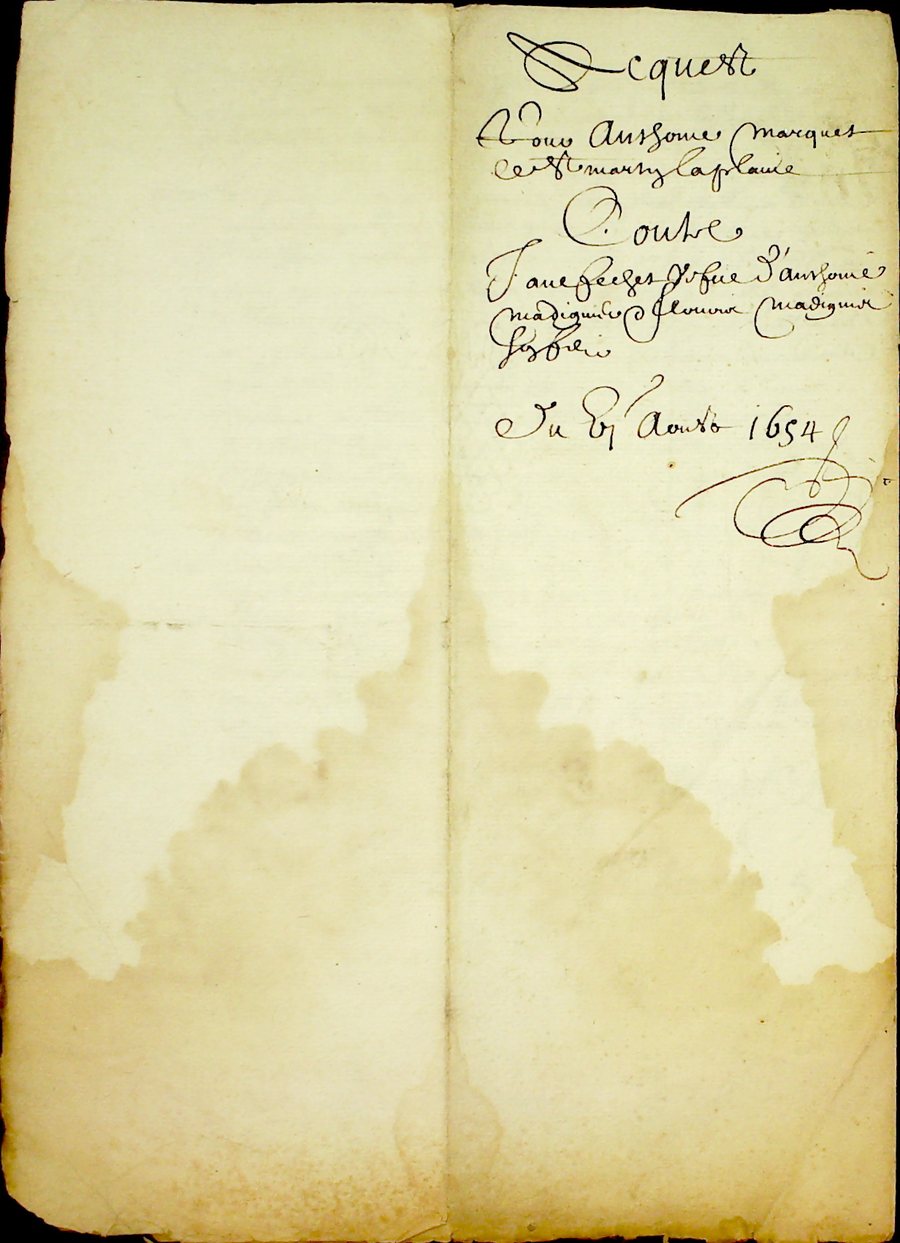 Acquest
Pour Anthonie Marquet
de St martin la plaine
Contre
Jane fechet vefue d'anthonie
madignier & flourie madignier
sa fille
Du vj Aoust 1654